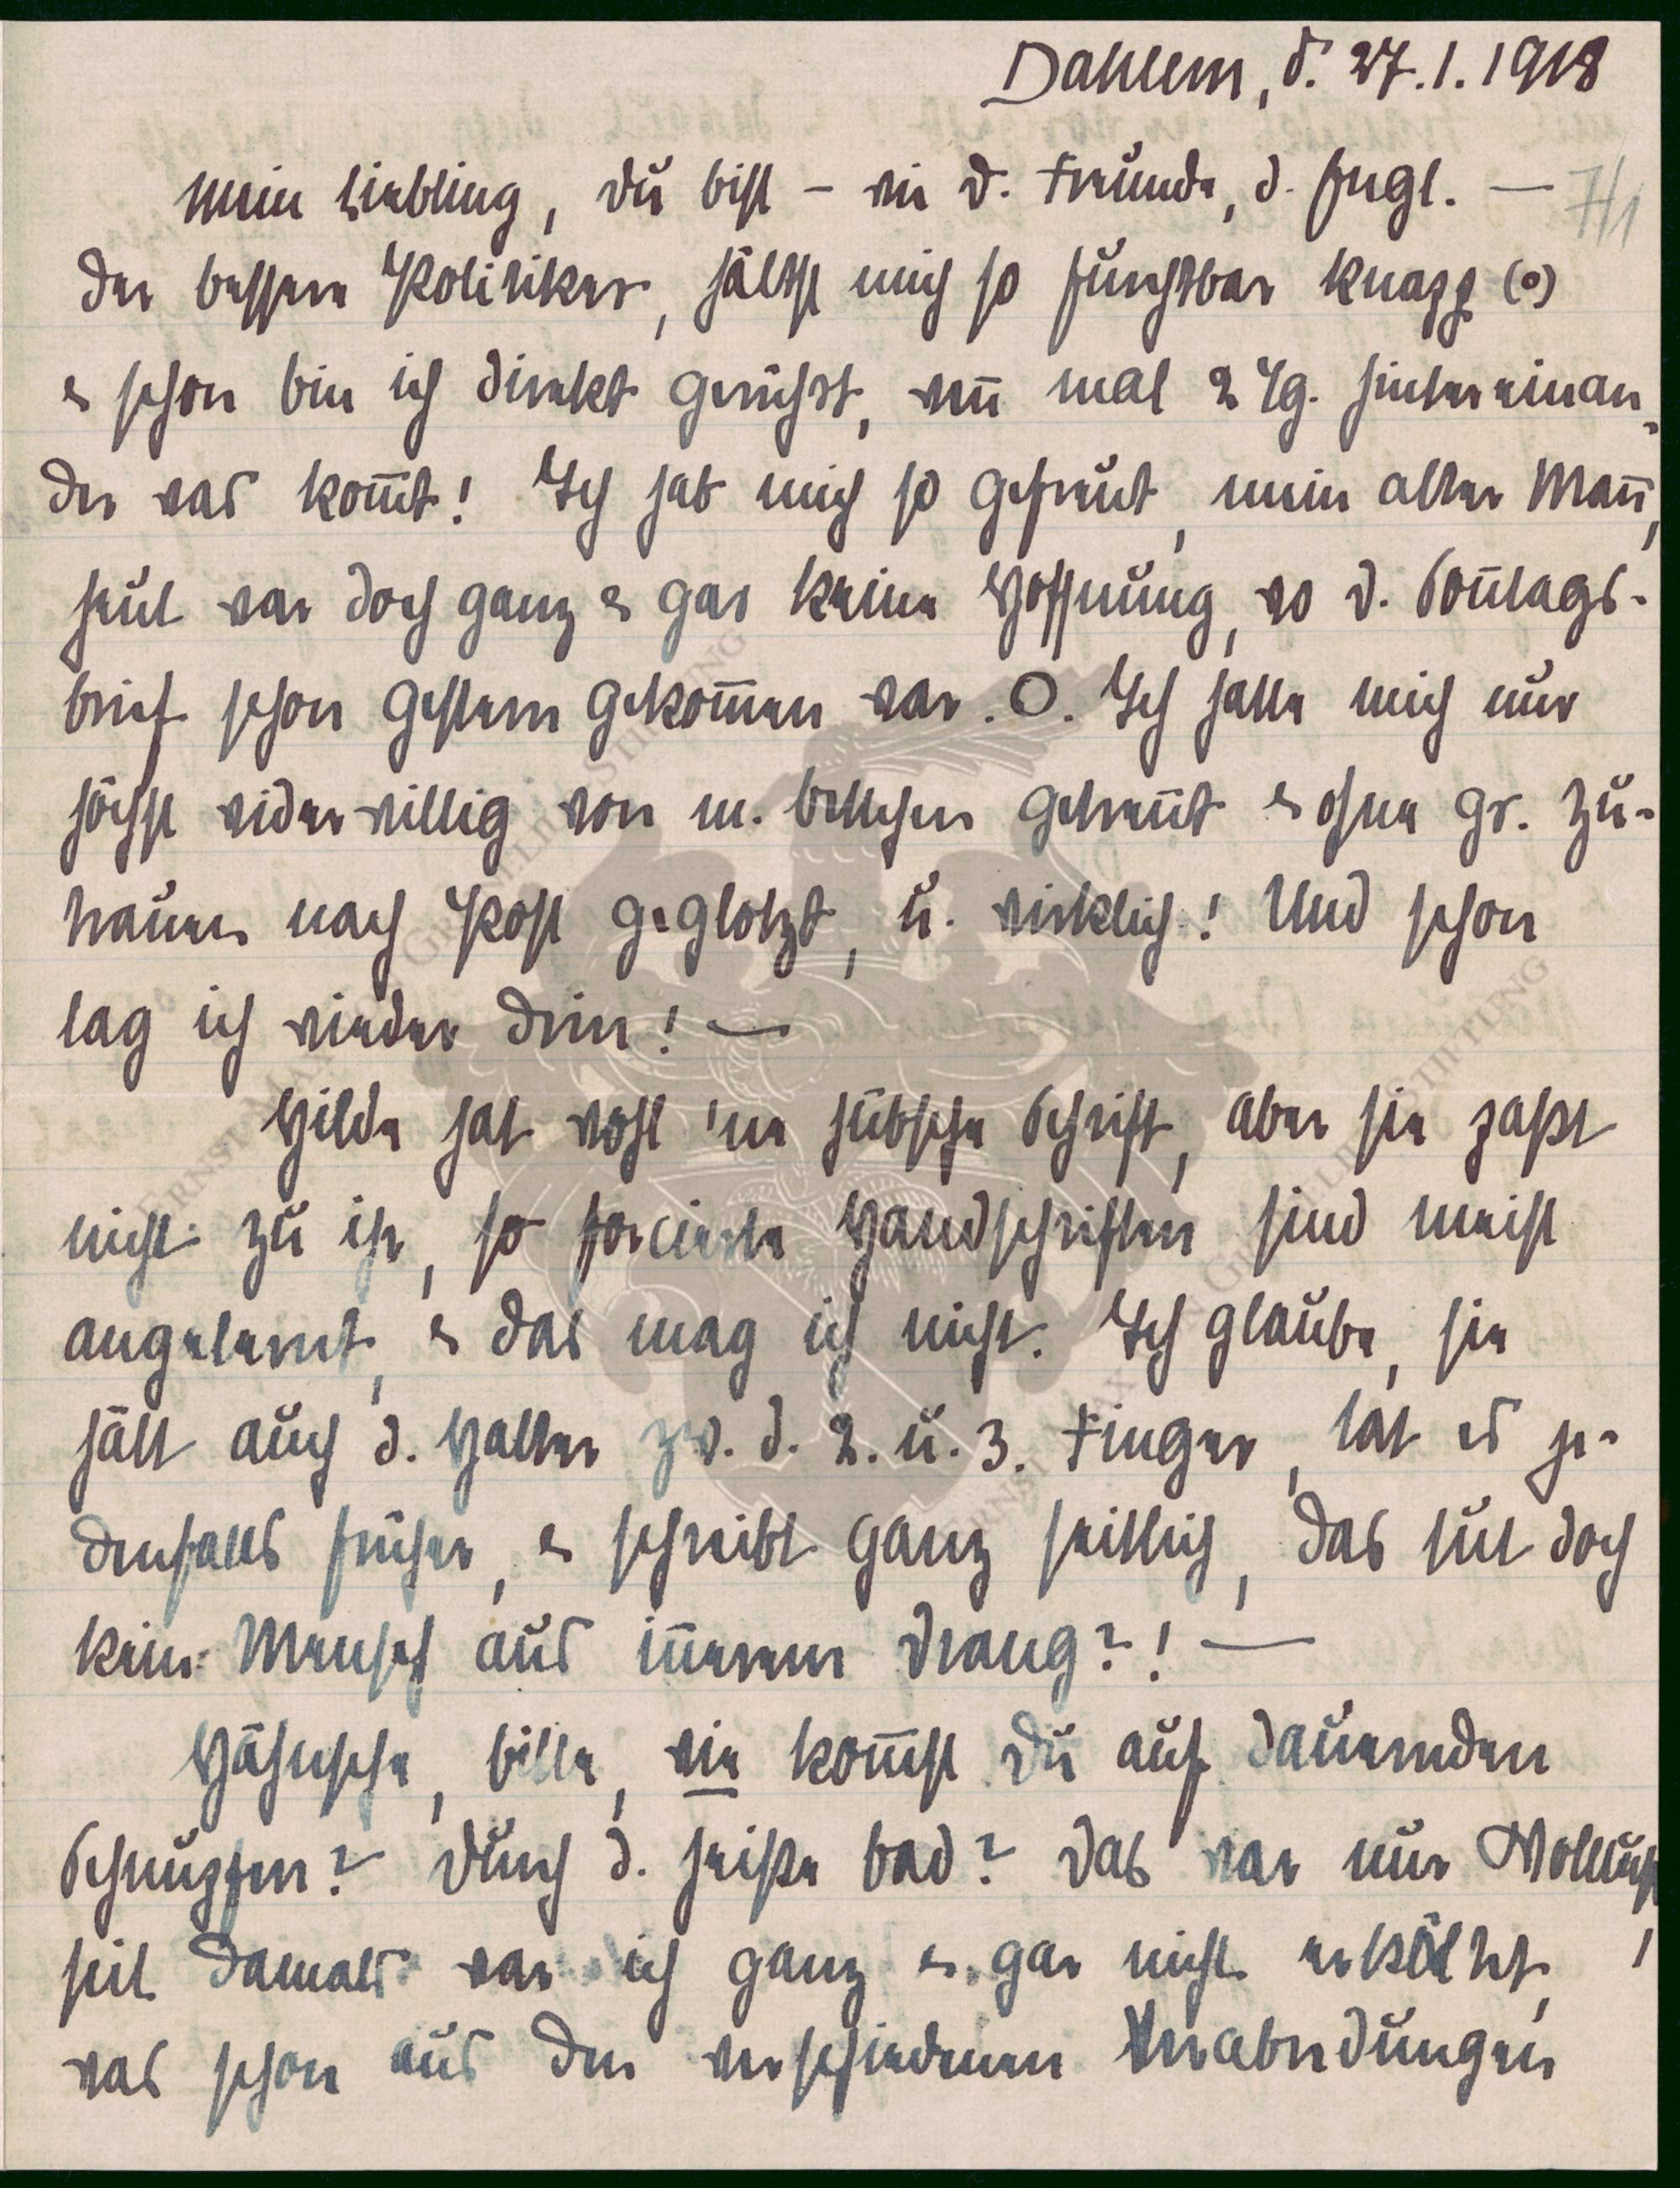 Dahlem, d. 27.1.1918
71
Mein Liebling, Du bist – wie d. Freunde, d. Engl. —
der bessere Politiker, hältst mich so furchtbar knapp (°)
& schon bin ich direkt gerührt, wen̄ mal 2 Tg. hintereinan-
der was kom̄t! Ich hab mich so gefreut, mein alter Man̄,
heut war doch ganz & gar keine Hoffnung, wo d. Son̄tags-
brief schon gestern gekom̄en war. O. Ich hatte mich nur
höchst widerwillig von m. Bettchen getren̄t & ohne gr. Zu-
trauen nach Post geglotzt, u. wirklich! Und schon
lag ich wieder drin! —
Hilde hat wohl 'ne hübsche Schrift, aber sie paßt
nicht zu ihr, so forcierte Handschriften sind meist
angelernt, & das mag ich nicht. Ich glaube, sie
hält auch d. Halter zw. d. 2. u. 3. Finger, tat es je-
denfalls früher, & schreibt ganz seitlich, das tut doch
kein Mensch aus in̄erem Drang?! —
Hähnsche, bitte, wie kom̄st Du auf dauernden
Schnupfen? Durch d. heiße Bad? Das war nur Wollust,
seit damals war ich ganz & gar nicht erkältet,
was schon aus den verschiedenen Verabredungen
ERNST MAX VON GRELLING STIFTUNG